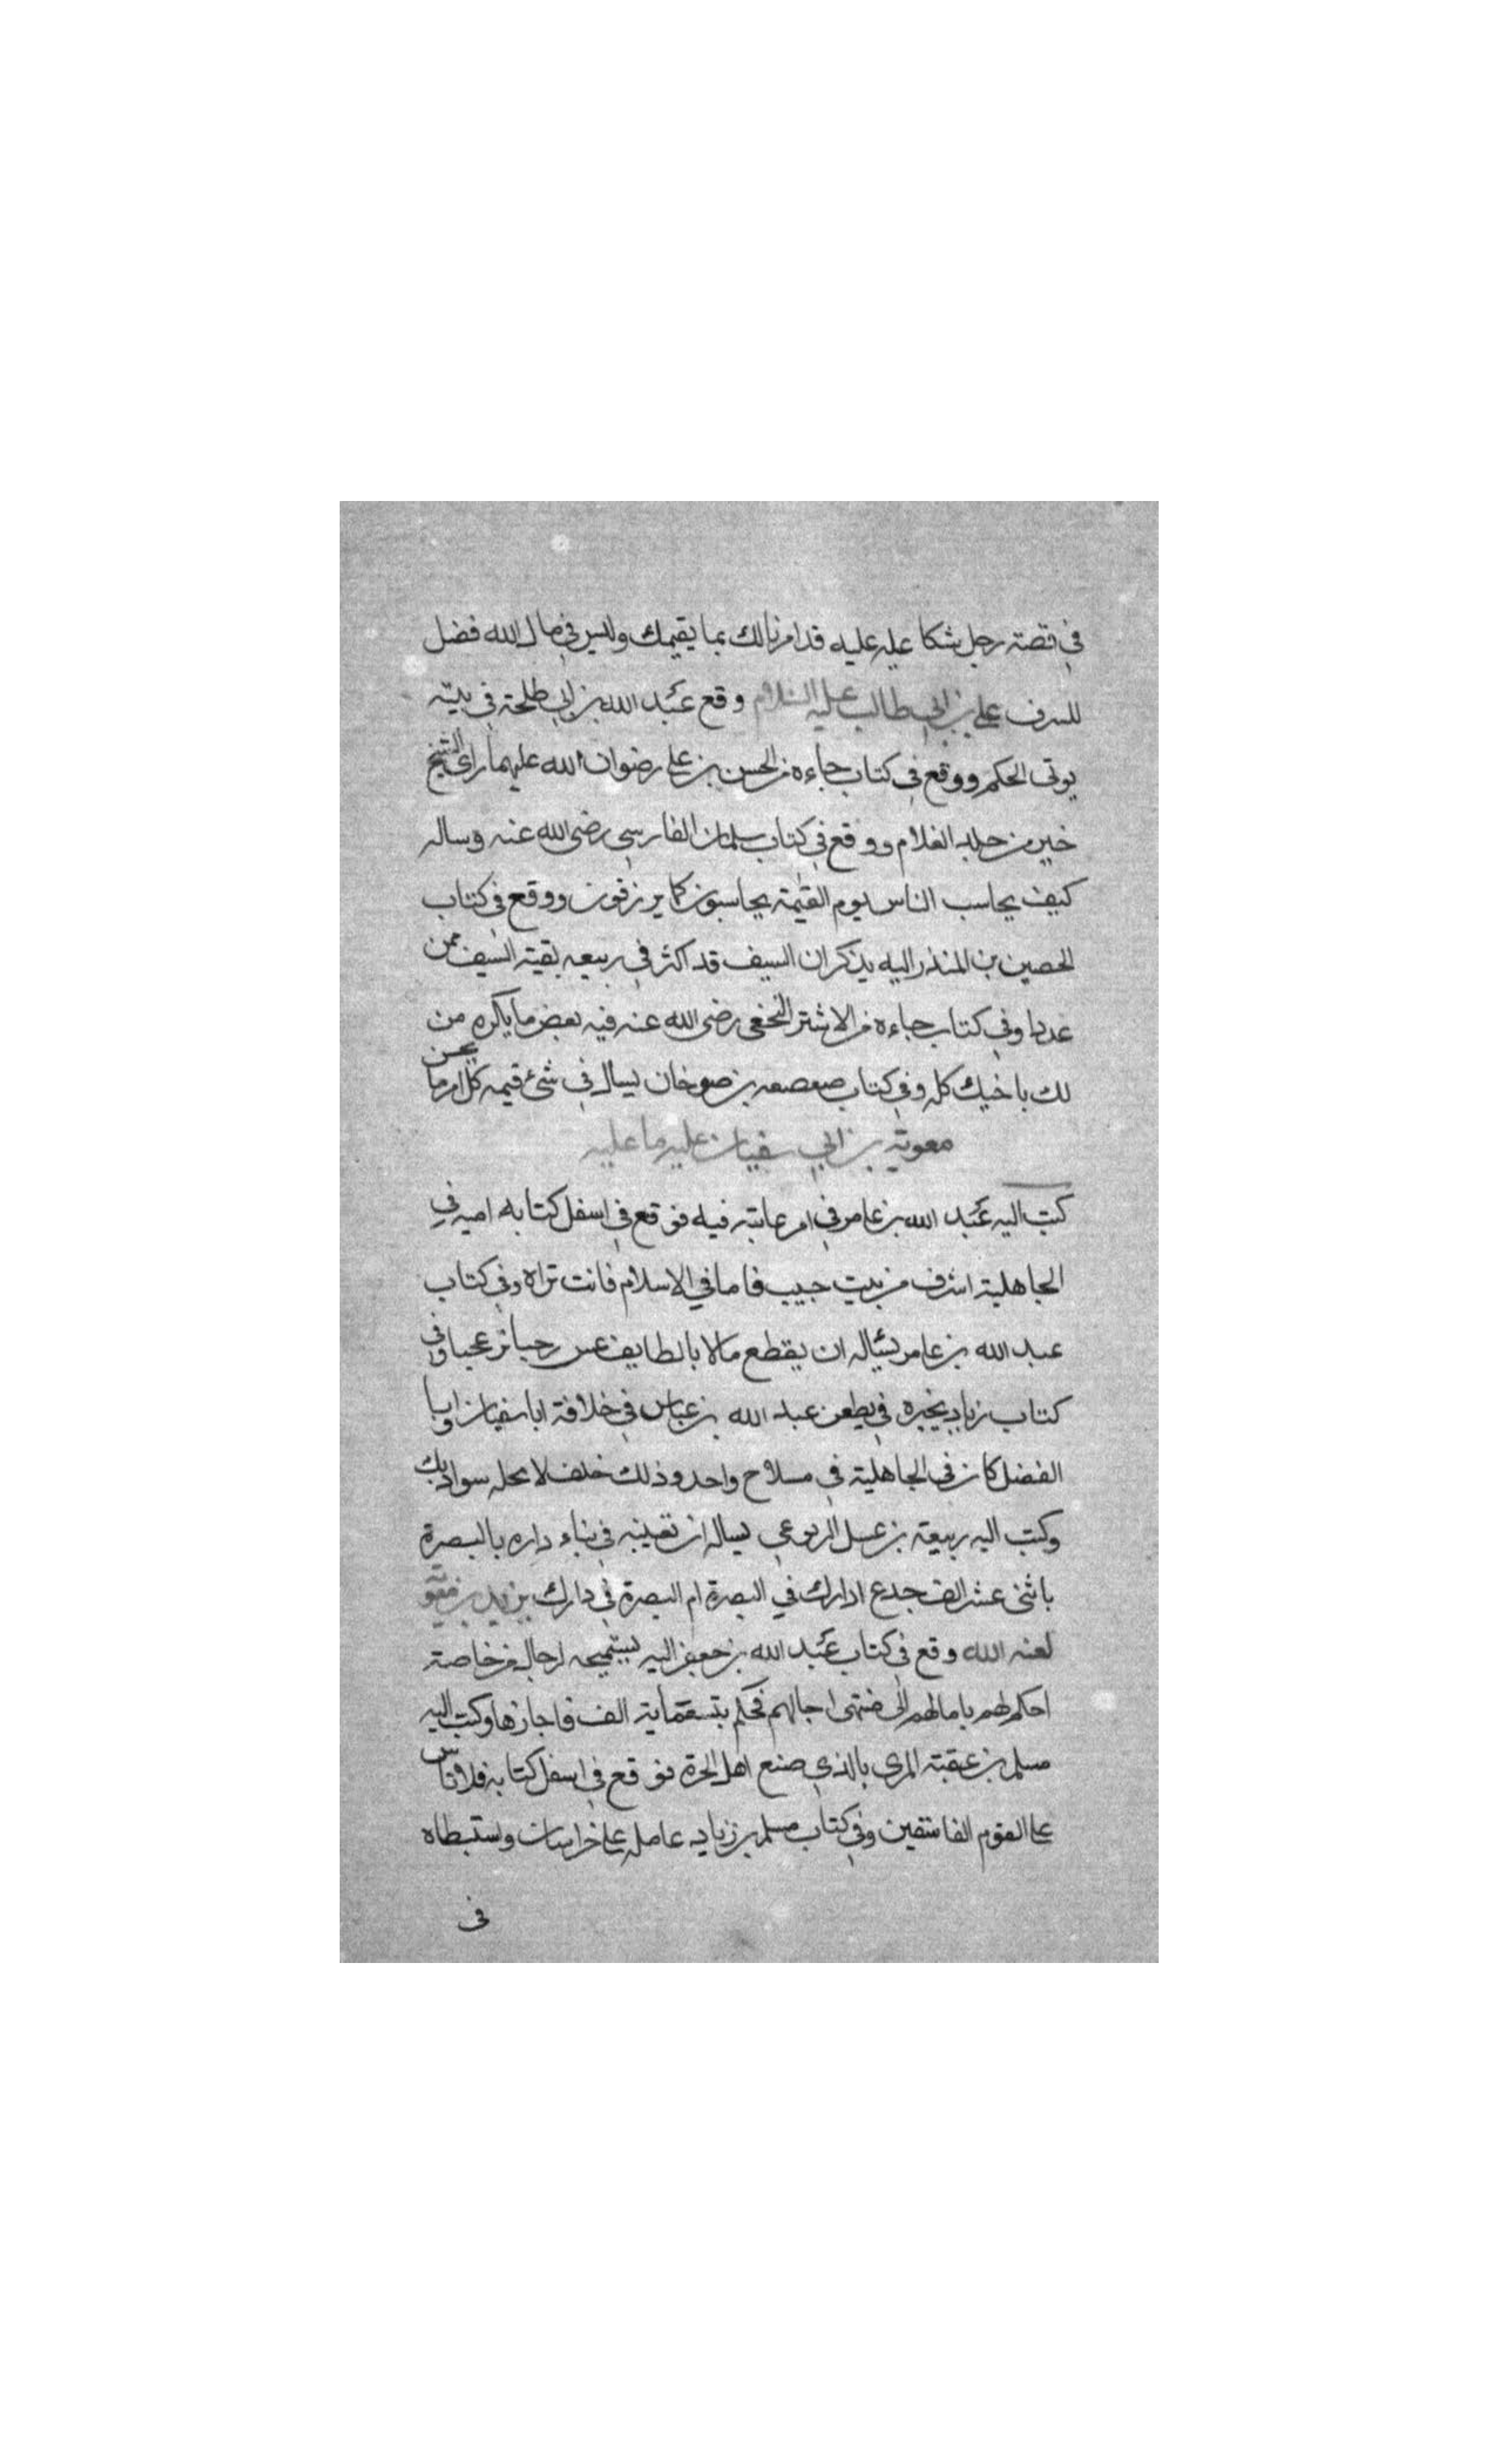 في قصة رجل شكا عليه عليه قد امرنا لك بما يقيمك وليس في مال الله فضل
للسرف علي بن ابي طالب عليه السلام وقع عبد الله بن ابي طلحة في بيته
يوتى الحكم ووقع في كتاب جاءه من الحسن بن علي رضوان الله عليهما راى الشيخ
خير من جلد الغلام ووقع في كتاب سلمان الفارسي رضى الله عنه وساله
كيف يحاسب الناس يوم القيمة يحاسبون كما يرزقون ووقع في كتاب
الحصين بن المنذر اليه يذكر ان السيف قد اكثر في ربيعه بقية السيف ممن
عددا وفي كتاب جاءه من الاشتر النخعي رضى الله عنه فيه بعض ما يكره من
لك باخيك كله وفي كتاب صعصعه بن صوخان يساله في شئ قيمه كل امر ما يحسن
معوية بن ابي سفيان عليه ما عليه
كتب اليه عبد الله بن عامر في امر عاتبه فيه فوقع في اسفل كتابه اميه في
الجاهلية اشرف من بيت حبيب فاما في الاسلام فانت تراه وفي كتاب
عبد الله بن عامر يسئاله ان يقطع مالا بالطايف عش رجبا تر عجبا وفي
كتاب زياد يخبره في يطعن عبد الله بن عباس في خلافة ابا سفيان وابا
الفضل كان في الجاهلية في مسلاح واحد وذلك خلف لا يحله سواد بك
وكتب اليه ربيعة بن عسل اليربوعي يساله ان تعينه في بناء داره بالبصرة
باثنى عشر الف جدع ادارك في البصرة ام البصرة في دارك يزيد بن معوية
لعنه الله وقع في كتاب عبد الله بن جعفر اليه يستميحه لرجال من خاصته
احكم لهم بامالهم الى منتهى اجالهم فحكم بتسعمأية الف فاجازها وكتب اليه
مسلم بن عقبة المرى بالذي صنع اهل الحرة فوقع في اسفل كتابه فلا تاس
على القوم الفاسقين وفي كتاب مسلم بن زياد عامله على خراسان واستبطاه
فى